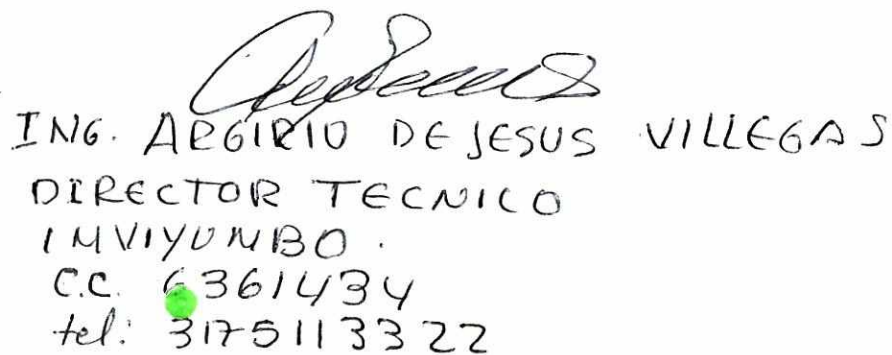 ING. ARGIRIO DE JESUS VILLEGAS
DIRECTOR TECNICO
IMVIYUMBO.
C.C. 6361434
tel: 3175113322